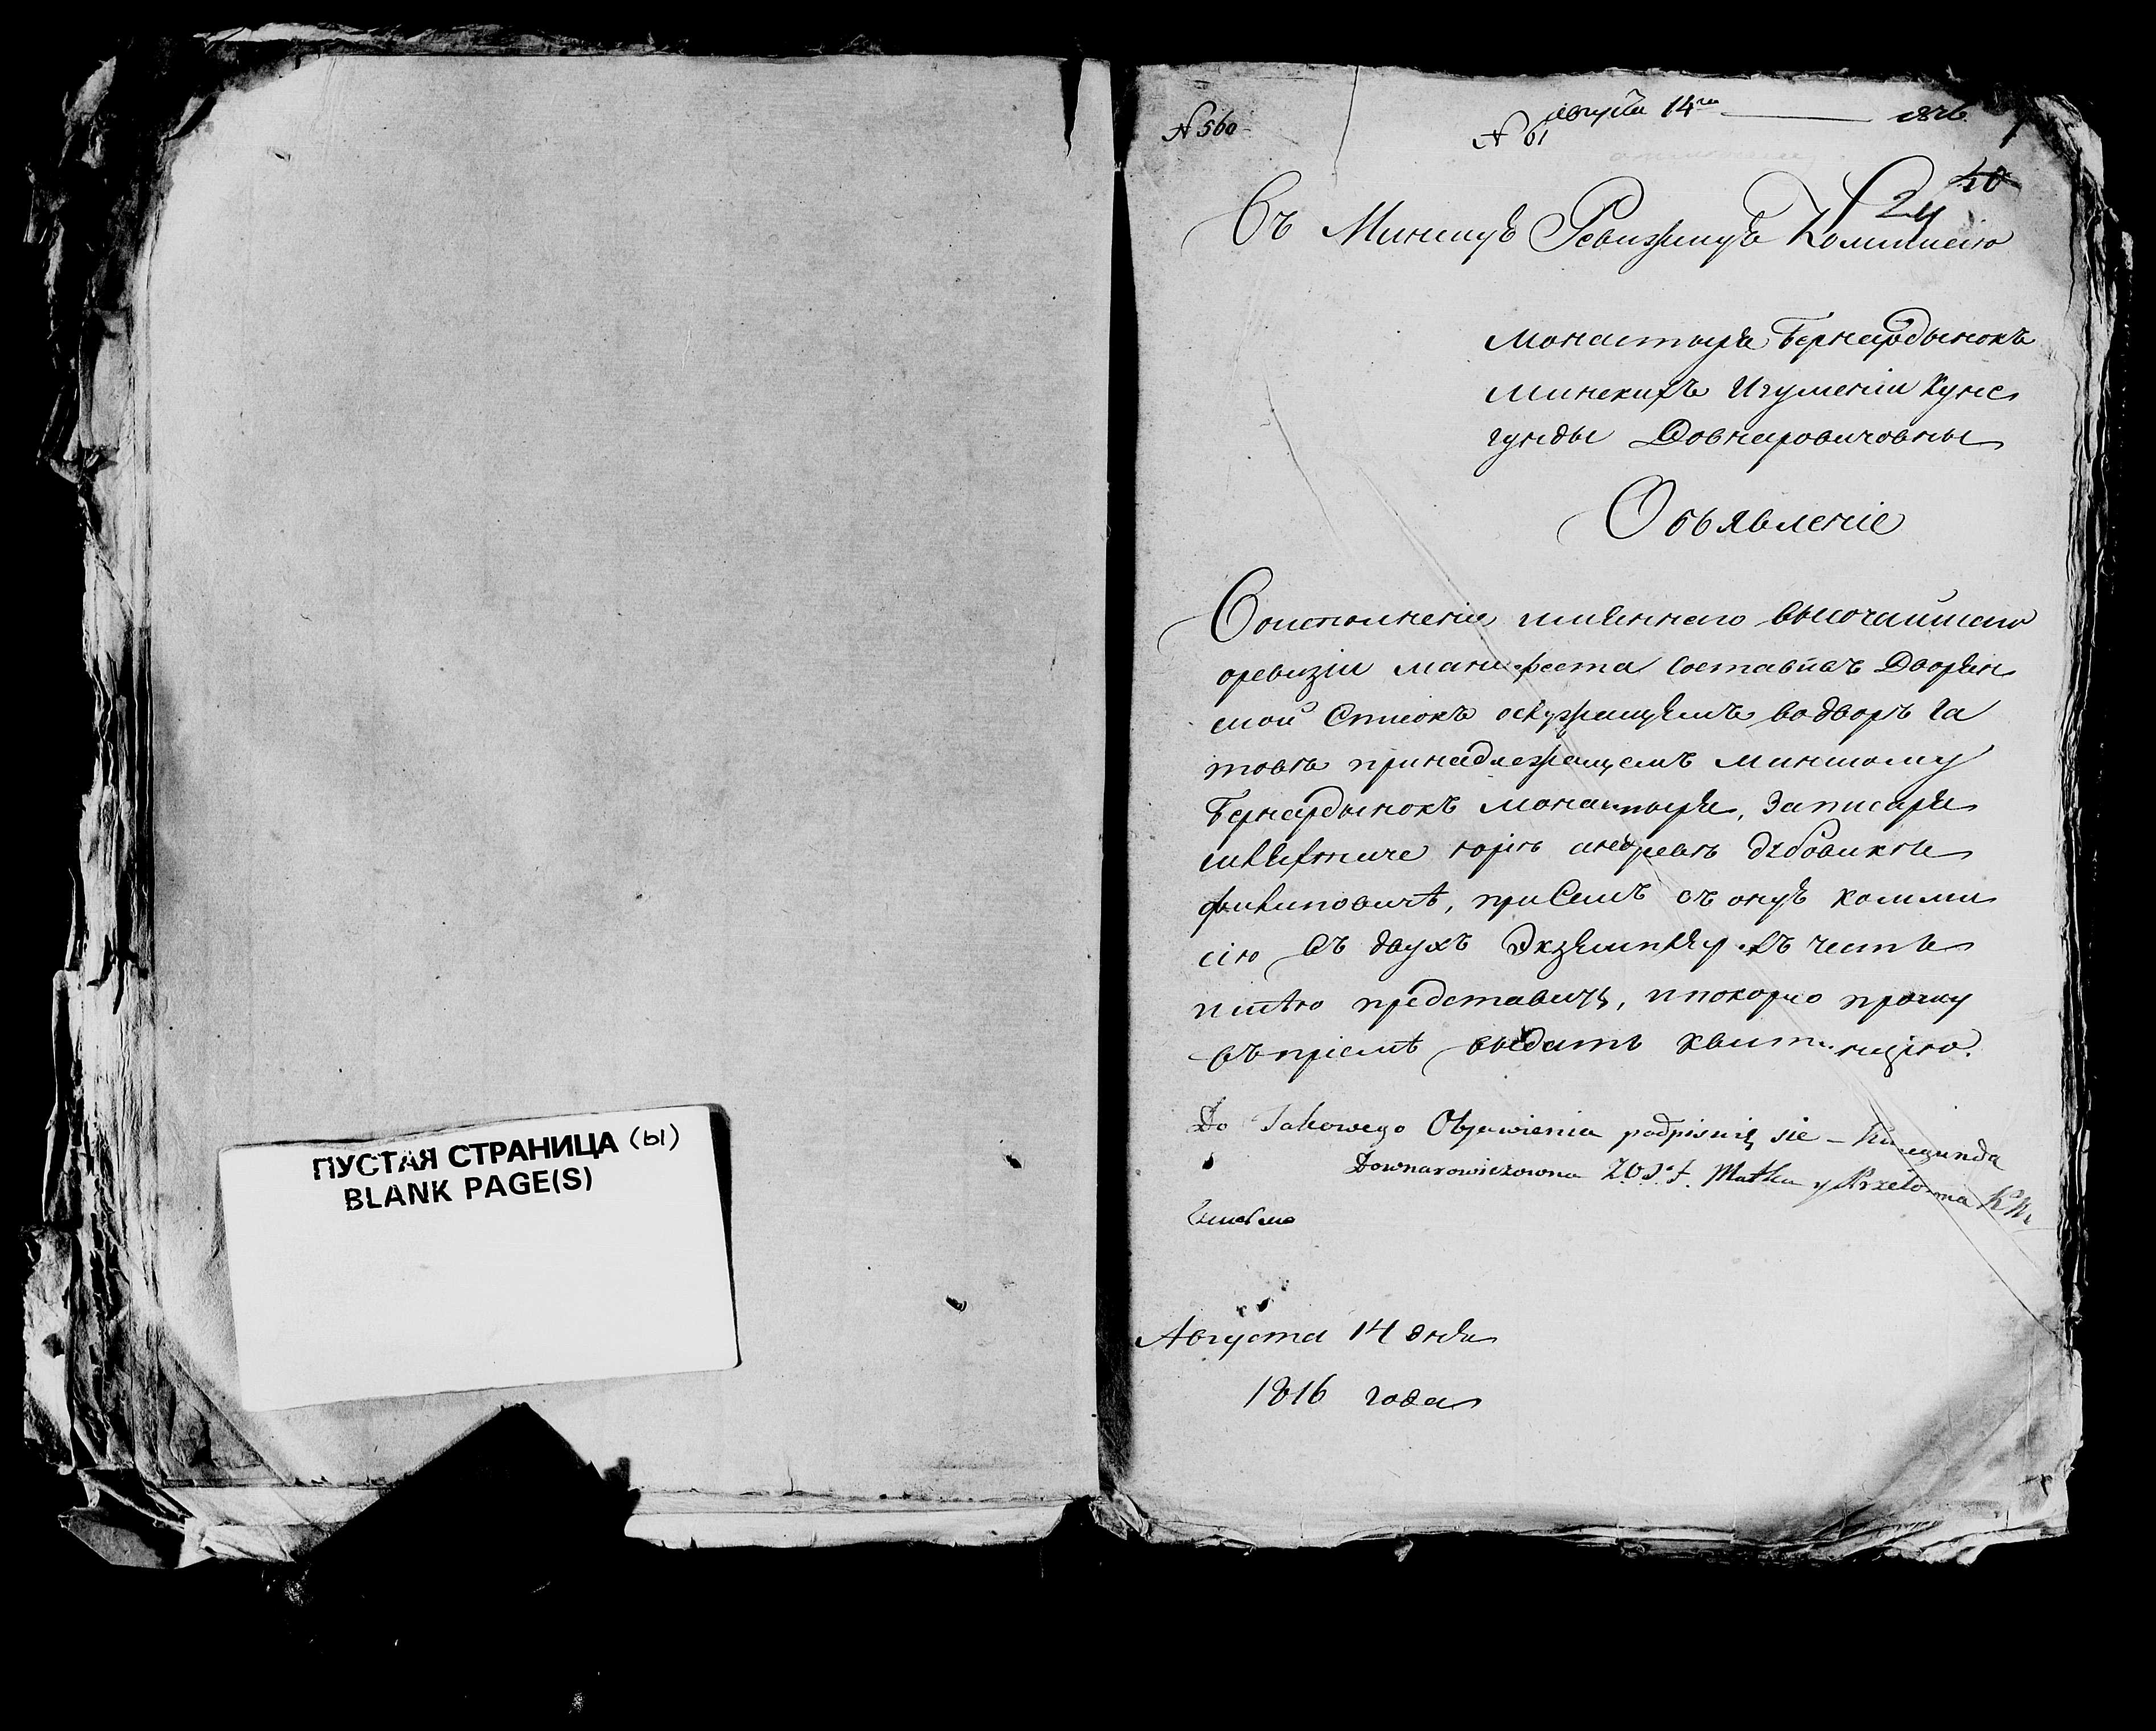 ПУСТАЯ СТРАНИЦА (ы)
BLANK PAGE(S)
№ 560
Августа 14го 1816
№ 61
40
24
Въ Минску Ревизскую Коммисію
Монастыря Бернардынокъ
Минскихъ Игуменіи Куне
гунды Довнаровичовны
Объявленіе
Воисполненіе имяннаго высочайшаго
оревизіи манифеста составивъ Дворян
ской Списокъ ослужащемъ водворѣ Га
товѣ принадлежащемъ Минскому
Бернардынокъ монастыря,
Филиповичѣ, присемъ въ ону комми
сію въ двухъ Экземпляр въ честь
имѣю представить, ипокорно прошу
въ пріемѣ выдать квитанцію.
Do Takowego Objawienia podpisuię się – Kunegunda
Downarowiczowna Z.O.S.F. Matka y Przełożona K. M.
Августа 14 дня
1816 года